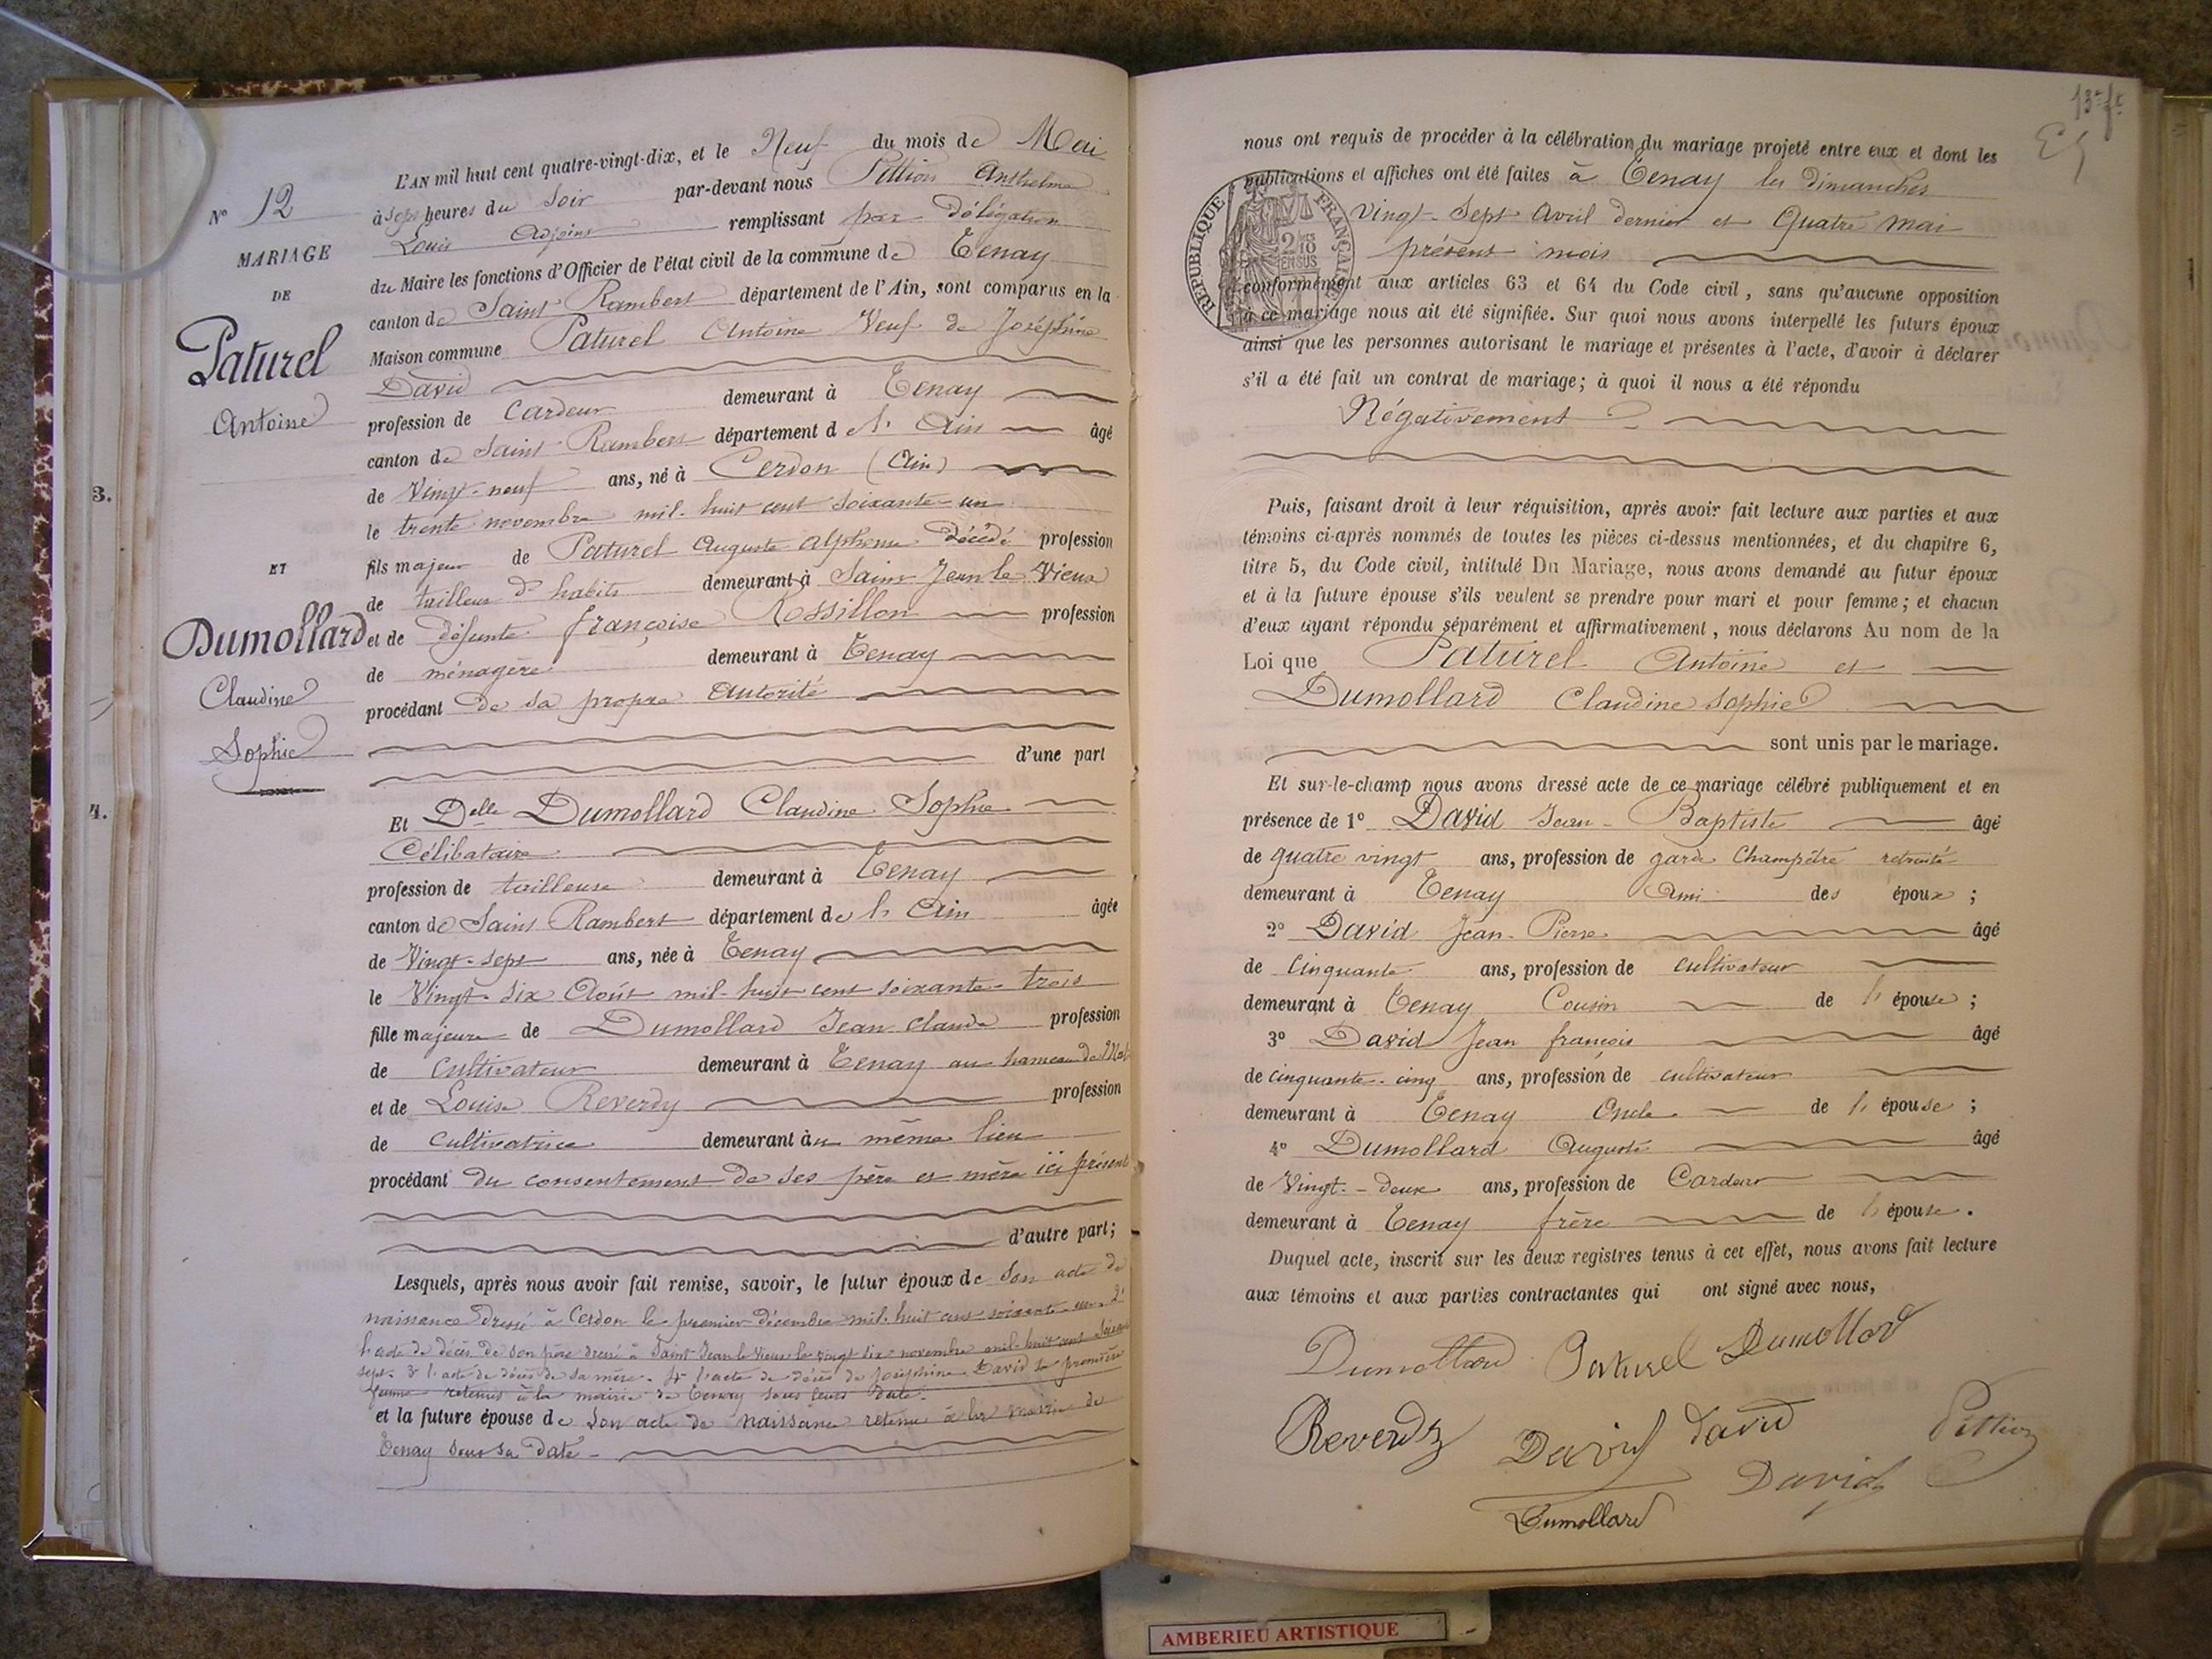 N° 12
MARIAGE
DE
Paturel
Antoine
ET
Dumollard
Claudine
Sophie
3.
4.
L'AN mil huit cent quatre-vingt-dix, et le Neuf du mois de Mai
à sept heures du Soir par-devant nous Pittion Anthelme
Louis Adjoint remplissant par Délégation
du Maire les fonctions d'Officier de l'état civil de la commune de Tenay
canton de Saint Rambert département de l'Ain, sont comparus en la
Maison commune Paturel Antoine Veuf de Joséphine
David
profession de Cardeur demeurant à Tenay
canton de Saint Rambert département de l'Ain âgé
de Vingt-neuf ans, né à Cerdon (Ain)
le trente novembre mil-huit cent soixante-un
fils majeur de Paturel Auguste Alphonse Décédé profession
de tailleur d'habits demeurant à Saint Jean le Vieux
et de défunte Françoise Rossillon profession
de ménagère demeurant à Tenay
procédant de sa propre Autorité
d'une part
Et Delle Dumollard Claudine Sophie
Célibataire
profession de tailleuse demeurant à Tenay
canton de Saint Rambert département de l'Ain âgée
de Vingt-sept ans, née à Tenay
le Vingt-six Août mil-huit cent soixante-trois
fille majeure de Dumollard Jean Claude profession
de Cultivateur demeurant à Tenay au hameau de
et de Louise Reverdy profession
de Cultivatrice demeurant àu même lieu
procédant du consentement de ses père et mère ici présents
d'autre part;
Lesquels, après nous avoir fait remise, savoir, le futur époux de son acte de
naissance Dressé à Cerdon le premier décembre mil-huit cent soixante-un. 2°
l'acte de décès de son père dressé à Saint Jean le Vieux le vingt six novembre mil-huit cent soixante
sept. 3° l'acte de décès de sa mère. 4° l'acte de décès de Joséphine David sa première
femme retenus à la mairie de Tenay sous leurs date.
et la future épouse de son acte de naissance retenu à la mairie de
Tenay sous sa date
13e ft
nous ont requis de procéder à la célébration du mariage projeté entre eux et dont les
publications et affiches ont été faites à Tenay les dimanches
Vingt-Sept Avril dernier et Quatre mai
présent mois
REPUBLIQUE FRANÇAISE
conformément aux articles 63 et 64 du Code civil, sans qu'aucune opposition
à ce mariage nous ait été signifiée. Sur quoi nous avons interpellé les futurs époux
ainsi que les personnes autorisant le mariage et présentes à l'acte, d'avoir à déclarer
s'il a été fait un contrat de mariage; à quoi il nous a été répondu
Négativement
Puis, faisant droit à leur réquisition, après avoir fait lecture aux parties et aux
témoins ci-après nommés de toutes les pièces ci-dessus mentionnées, et du chapitre 6,
titre 5, du Code civil, intitulé Du Mariage, nous avons demandé au futur époux
et à la future épouse s'ils veulent se prendre pour mari et pour femme; et chacun
d'eux ayant répondu séparément et affirmativement, nous déclarons Au nom de la
Loi que Paturel Antoine et
Dumollard Claudine Sophie
sont unis par le mariage.
Et sur-le-champ nous avons dressé acte de ce mariage célébré publiquement et en
présence de 1° David Jean-Baptiste âgé
de quatre vingt ans, profession de garde Champêtre retraité
demeurant à Tenay Ami des époux;
2° David Jean-Pierre âgé
de Cinquante ans, profession de cultivateur
demeurant à Tenay Cousin de l'épouse;
3° David Jean françois âgé
de cinquante-cinq ans, profession de cultivateur
demeurant à Tenay Oncle de l'épouse;
4° Dumollard Auguste âgé
de Vingt-deux ans, profession de Cardeur
demeurant à Tenay frère de l'épouse.
Duquel acte, inscrit sur les deux registres tenus à cet effet, nous avons fait lecture
aux témoins et aux parties contractantes qui ont signé avec nous,
Dumollard Paturel Dumollard
Reverdy David David Pittion
David
Dumollard
AMBERIEU ARTISTIQUE